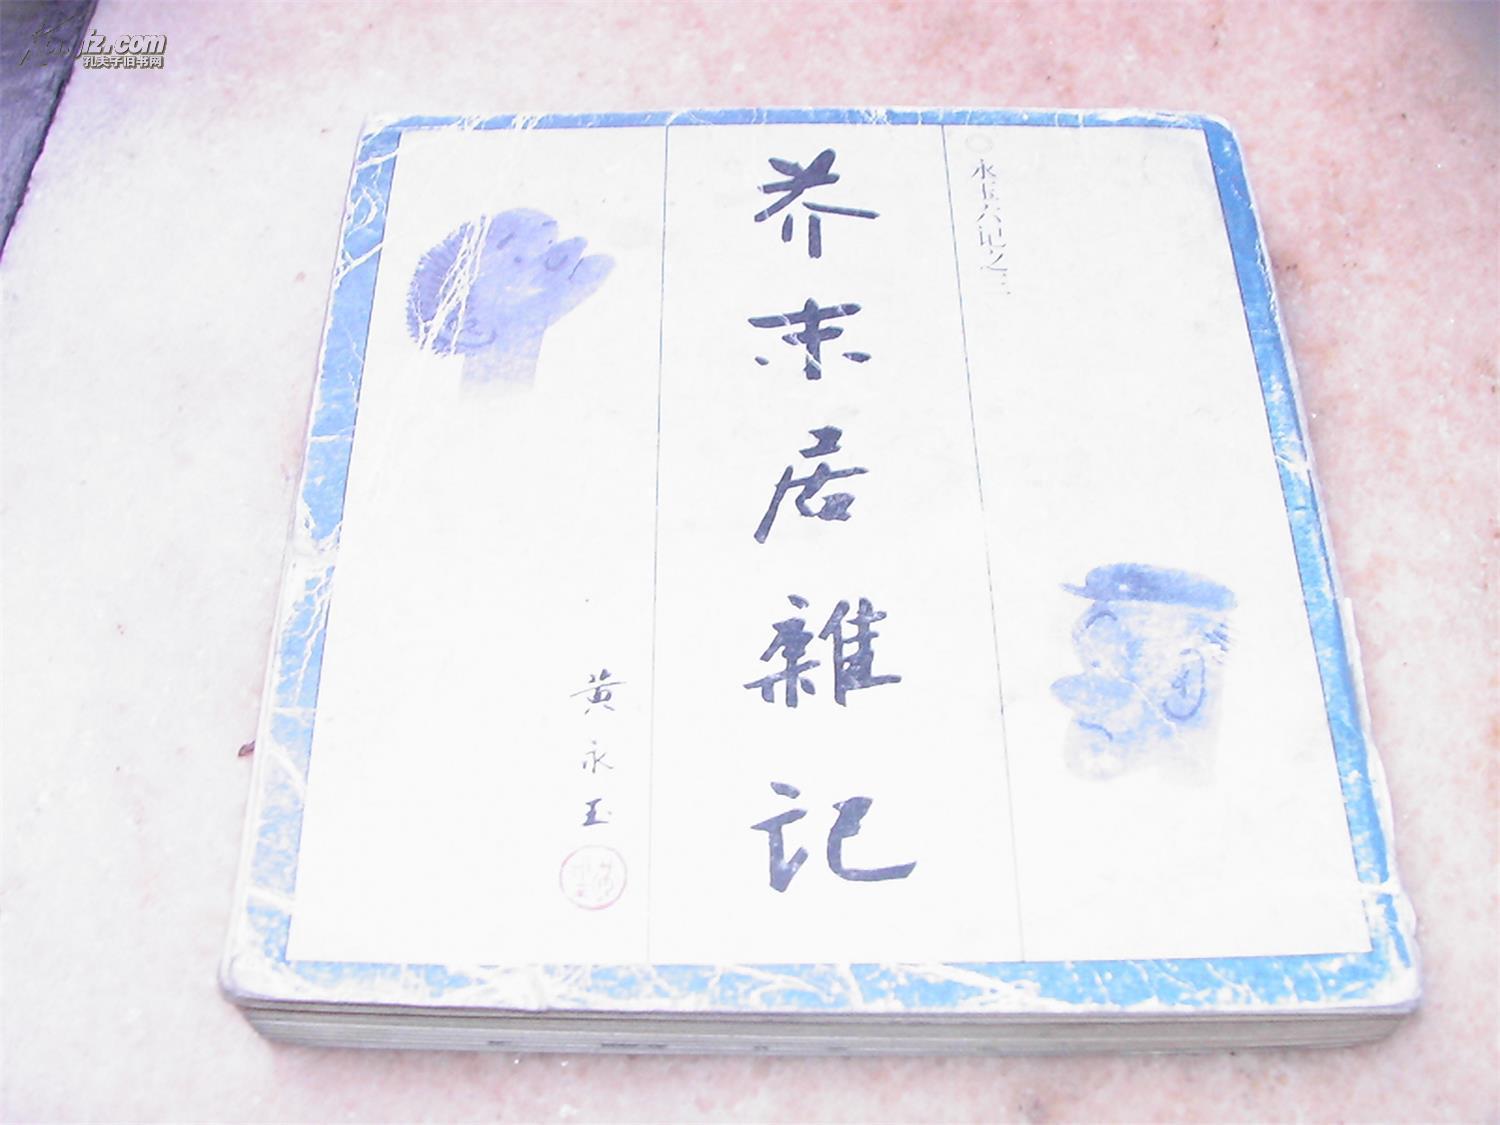 永玉六记之三
芥末居雜记
黄永玉
fz.com
孔夫子旧书网